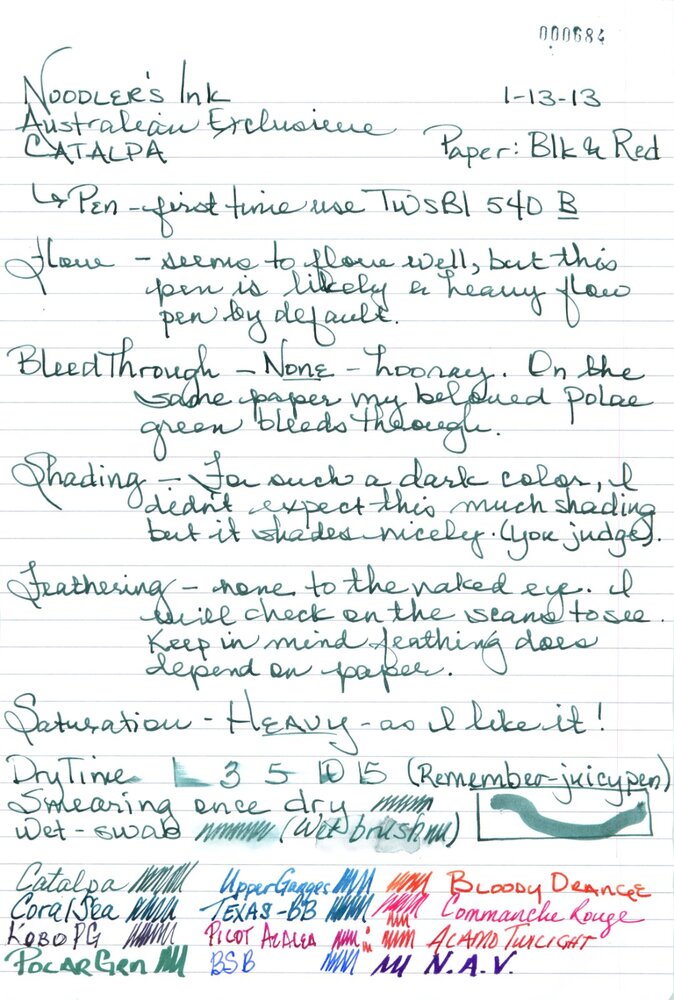 000684
Noodler's Ink 1-13-13
Australian Exclusive
CATALPA Paper: Blk n Red
↳ Pen - first time use TWSBI 540 B
Flow - seems to flow well, but this
pen is likely a heavy flow
pen by default.
BleedThrough - None - hooray. On the
same paper my beloved Polar
green bleeds through.
Shading - For such a dark color, I
didn't expect this much shading
but it shades nicely. (you judge).
Feathering - none to the naked eye. I
will check on the scans to see.
Keep in mind feathing does
depend on paper.
Saturation - HEAVY - as I like it!
Dry Time 1 3 5 10 15 (Remember-juicy pen)
Smearing once dry
Wet-swab (Wet brush)
Catalpa Upper Ganges BLOODY ORANGE
Coral Sea TEXAS-BB Commanche Rouge
KoBo PG PICOT AZALEA ALAMO TWILIGHT
POLAR GRN BSB N.A.V.